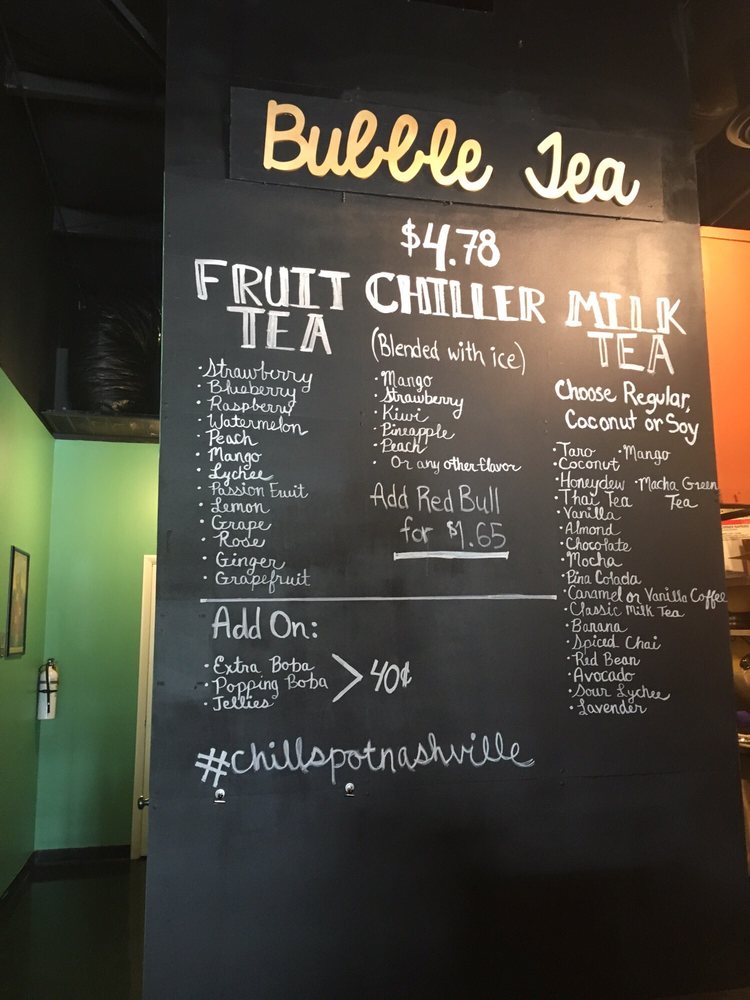 Bubble Tea
$4.78
FRUIT TEA
· Strawberry
· Blueberry
· Raspberry
· Watermelon
· Peach
· Mango
· Lychee
· Passion Fruit
· Lemon
· Grape
· Rose
· Ginger
· Grapefruit
CHILLER
(Blended with ice)
· Mango
· Strawberry
· Kiwi
· Pineapple
· Peach
· Or any other flavor
Add Red Bull
for $1.65
MILK TEA
Choose Regular,
Coconut or Soy
· Taro · Mango
· Coconut
· Honeydew · Macha Green
· Thai Tea Tea
· Vanilla
· Almond
· Chocolate
· Mocha
· Pina Colada
· Caramel or Vanilla Coffee
· Classic Milk Tea
· Banana
· Spiced Chai
· Red Bean
· Avocado
· Sour Lychee
· Lavender
Add On:
· Extra Boba
· Popping Boba > 40¢
· Jellies
#chillspotnashville